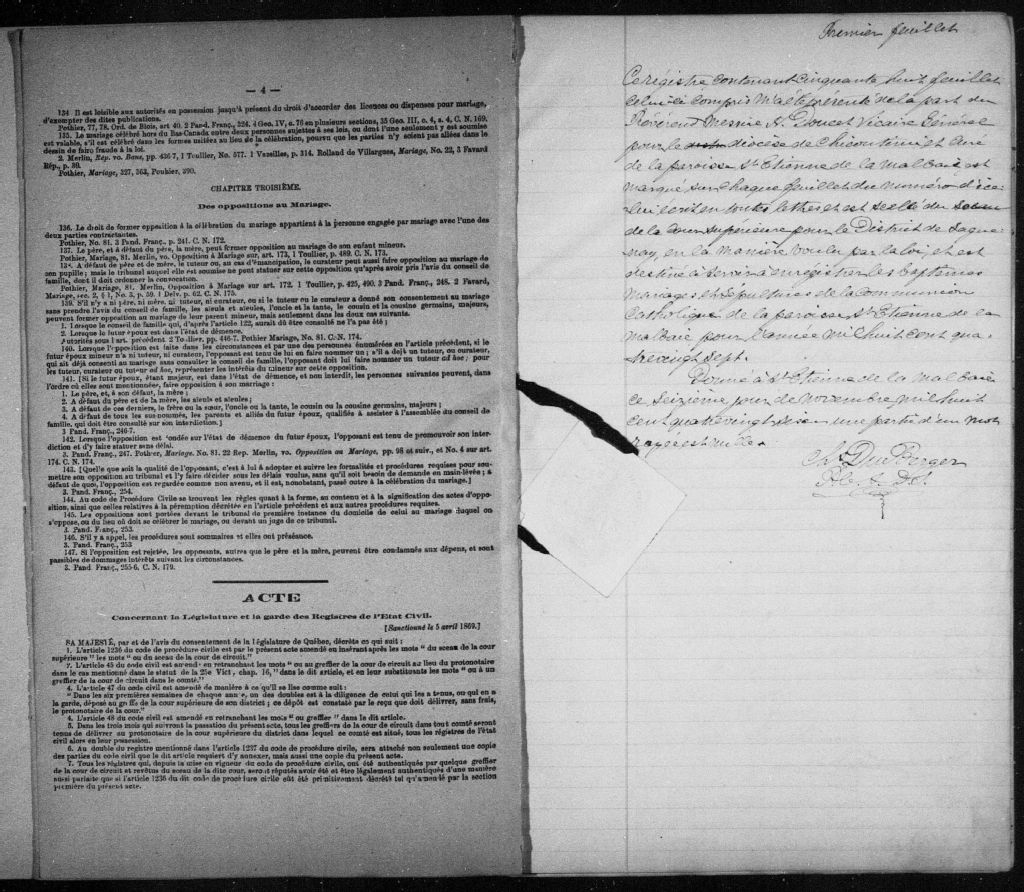 — 4 —
134 Il est loisible aux autorités en possession jusqu'à présent du droit d'accorder des licences ou dispenses pour mariage,
d'exempter des dites publications.
Pothier, 77, 78. Ord. de Blois, art 40. 2 Pand. Franç., 324. 3 Geo. IV, c. 76 en plusieurs sections, 35 Geo. III, c. 4, s. 4, C. N. 169.
135. Le mariage célébré hors du Bas-Canada entre deux personnes sujettes à ses lois, ou dont l'une seulement y est soumise
est valable, s'il est célébré dans les formes usitées au lieu de la célébration, pourvu que les parties n'y soient pas allées dans le
dessein de faire fraude à la loi.
2. Merlin, Rep. vo. Bans, pp. 436-7, 1 Toullier, No. 577. 1 Vazeilles, p. 314. Rolland de Villargues, Mariage, No. 22, 3 Favard
Rép., p. 39.
Pothier, Mariage, 327, 363, Pouhier, 390.
CHAPITRE TROISIÈME.
Des oppositions au Mariage.
136. Le droit de former opposition à la célébration du mariage appartient à la personne engagée par mariage avec l'une des
deux parties contractantes.
Pothier, No. 81. 3 Pand. Franç., p. 241. C. N. 172.
137. Le père, et à défaut du père, la mère, peut former opposition au mariage de son enfant mineur.
Pothier, Mariage, 81. Merlin, vo. Opposition à Mariage sur, art. 173, 1 Toullier, p. 489. C. N. 173.
138. A défaut de père et de mère, le tuteur ou, au cas d'émancipation, le curateur peut aussi faire opposition au mariage de
son pupille; mais le tribunal auquel elle est soumise ne peut statuer sur cette opposition qu'après avoir pris l'avis du conseil de
famille, dont il doit ordonner la convocation.
Pothier, Mariage, 81. Merlin, Opposition à Mariage sur art. 172. 1 Toullier, p. 425, 490. 3 Pand. Franç., 248. 2 Favard,
Mariage, sec. 2, § 1, No. 3, p. 59. 1 Delv. p. 62. C. N. 175.
139. S'il n'y a ni père, ni mère, ni tuteur, ni curateur, ou si le tuteur ou le curateur a donné son consentement au mariage
sans prendre l'avis du conseil de famille, les aïeuls et aïeules, l'oncle et la tante, le cousin et la cousine germains, majeurs,
peuvent former opposition au mariage de leur parent mineur, mais seulement dans les deux cas suivants.
1. Lorsque le conseil de famille qui, d'après l'article 122, aurait dû être consulté ne l'a pas été;
2. Lorsque le futur époux est dans l'état de démence.
Autorités sous l'art. précédent 2 Toullier, pp. 446-7. Pothier Mariage, No. 81. C.-N. 174.
140. Lorsque l'opposition est faite dans les circonstances et par une des personnes énumérées en l'article précédent, si le
futur époux mineur n'a ni tuteur, ni curateur, l'opposant est tenu de lui en faire nommer un; s'il a déjà un tuteur, ou curateur,
qui ait déjà consenti au mariage sans consulter le conseil de famille, l'opposant doit lui faire nommer un tuteur ad hoc; pour
les tuteur, curateur ou tuteur ad hoc, représenter les intérêts du mineur sur cette opposition.
141. [Si le futur époux, étant majeur, est dans l'état de démence, et non interdit, les personnes suivantes peuvent, dans
l'ordre où elles sont mentionnées, faire opposition à son mariage :
1. Le père, et, à son défaut, la mère;
2. A défaut du père et de la mère, les aïeuls et aïeules;
3. A défaut de ces derniers, le frère ou la sœur, l'oncle ou la tante, le cousin ou la cousine germains, majeurs;
4. A défaut de tous les sus-nommés, les parents et alliés du futur époux, qualifiés à assister à l'assemblée du conseil de
famille, qui doit être consulté sur son interdiction.]
3 Pand. Franç., 246-7.
142. Lorsque l'opposition est fondée sur l'état de démence du futur époux, l'opposant est tenu de promouvoir son inter-
diction et d'y faire statuer sans délai.
3. Pand. Franç., 247. Pothier, Mariage, No. 81. 22 Rep. Merlin, vo. Opposition au Mariage, pp. 98 et suiv., et No. 4 sur art.
174. C. N. 174.
143. [Quelle que soit la qualité de l'opposant, c'est à lui à adopter et suivre les formalités et procédures requises pour sou-
mettre son opposition au tribunal et l'y faire décider sous les délais voulus, sans qu'il soit besoin de demande en main-levée; à
défaut de quoi, l'opposition est regardée comme non avenu, et il est, nonobstant, passé outre à la célébration du mariage.]
3. Pand. Franç., 254.
144. Au code de Procédure Civile se trouvent les règles quant à la forme, au contenu et à la signification des actes d'oppo-
sition, ainsi que celles relatives à la péremption décrétée en l'article précédent et aux autres procédures requises.
145. Les oppositions sont portées devant le tribunal de première instance du domicile de celui au mariage duquel on
s'oppose, ou du lieu où doit se célébrer le mariage, ou devant un juge de ce tribunal.
3. Pand. Franç., 253.
146. S'il y a appel, les procédures sont sommaires et elles ont préséance.
3. Pand. Franç., 253
147. Si l'opposition est rejetée, les opposants, autres que le père et la mère, peuvent être condamnés aux dépens, et sont
passibles de dommages intérêts suivant les circonstances.
3. Pand. Franç., 255-6. C. N. 179.
ACTE
Concernant la Législature et la garde des Registres de l'Etat Civil.
[Sanctionné le 5 avril 1869.]
SA MAJESTÉ, par et de l'avis du consentement de la législature de Québec, décrète ce qui suit :
1. L'article 1236 du code de procédure civile est par le présent acte amendé en insérant après les mots " du sceau de la cour
supérieure " les mots " ou du sceau de la cour de circuit."
2. L'article 45 du code civil est amendé en retranchant les mots " ou au greffier de la cour de circuit au lieu du protonotaire
dans le cas mentionné dans le statut de la 25e Vict., chap. 16, " dans le dit article, et en leur substituant les mots " ou à un
greffier de la cour de circuit dans le comté."
4. L'article 47 du code civil est amendé de manière à ce qu'il se lise comme suit :
" Dans les six premières semaines de chaque année, ou des doubles est à la diligence de celui qui les a tenus, ou qui en a
la garde, déposé au greffe de la cour supérieure de son district; ce dépôt est constaté par le reçu que doit délivrer, sans frais,
le protonotaire de la cour."
4. L'article 48 du code civil est amendé en retranchant les mots " ou greffier " dans le dit article.
5. Dans les trois mois qui suivront la passation du présent acte, tous les greffiers de la cour de circuit dans tout comté seront
tenus de délivrer au protonotaire de la cour supérieure du district dans lequel ce comté est situé, tous les registres de l'état
civil alors en leur possession.
6. Au double du registre mentionné dans l'article 1237 du code de procédure civile, sera attaché non seulement une copie
des parties du code civil que le dit article requiert d'y annexer, mais aussi une copie du présent acte.
7. Tous les registres qui, depuis la mise en vigueur du code de procédure civile, ont été authentiqués par quelque greffier
de la cour de circuit et revêtus du sceau de la dite cour, seront réputés avoir été et être légalement authentiqués d'une manière
aussi parfaite que si l'article 1236 du dit code de procédure civile eût été primitivement décrété tel qu'amendé par la section
première du présent acte.
Premier feuillet
Ce registre contenant cinquante huit feuillets
celui-là compris m'a été présenté de la part du
Révérend Messire A. Doucet Vicaire Général
pour le diocèse de Chicoutimi et Curé
de la paroisse St Etienne de la Malbaie, est
marqué sur chaque feuillet du numéro d'ice-
lui écrit en toutes lettres et est scellé du sceau
de la cour supérieure pour le District de Sague-
nay, en la manière voulue par la loi, et est
destiné à servir à enregistrer les baptêmes
mariages et sépultures de la Communion
Catholique de la paroisse St Etienne de la
Malbaie pour l'année mil huit cent qua-
trevingt sept.
Donné à St Etienne de la Malbaie
ce seizième jour de novembre mil huit
cent quatrevingt six une partie d'un mot
rayée est nulle.
Chs Du Berger
P.C.S. D.S.